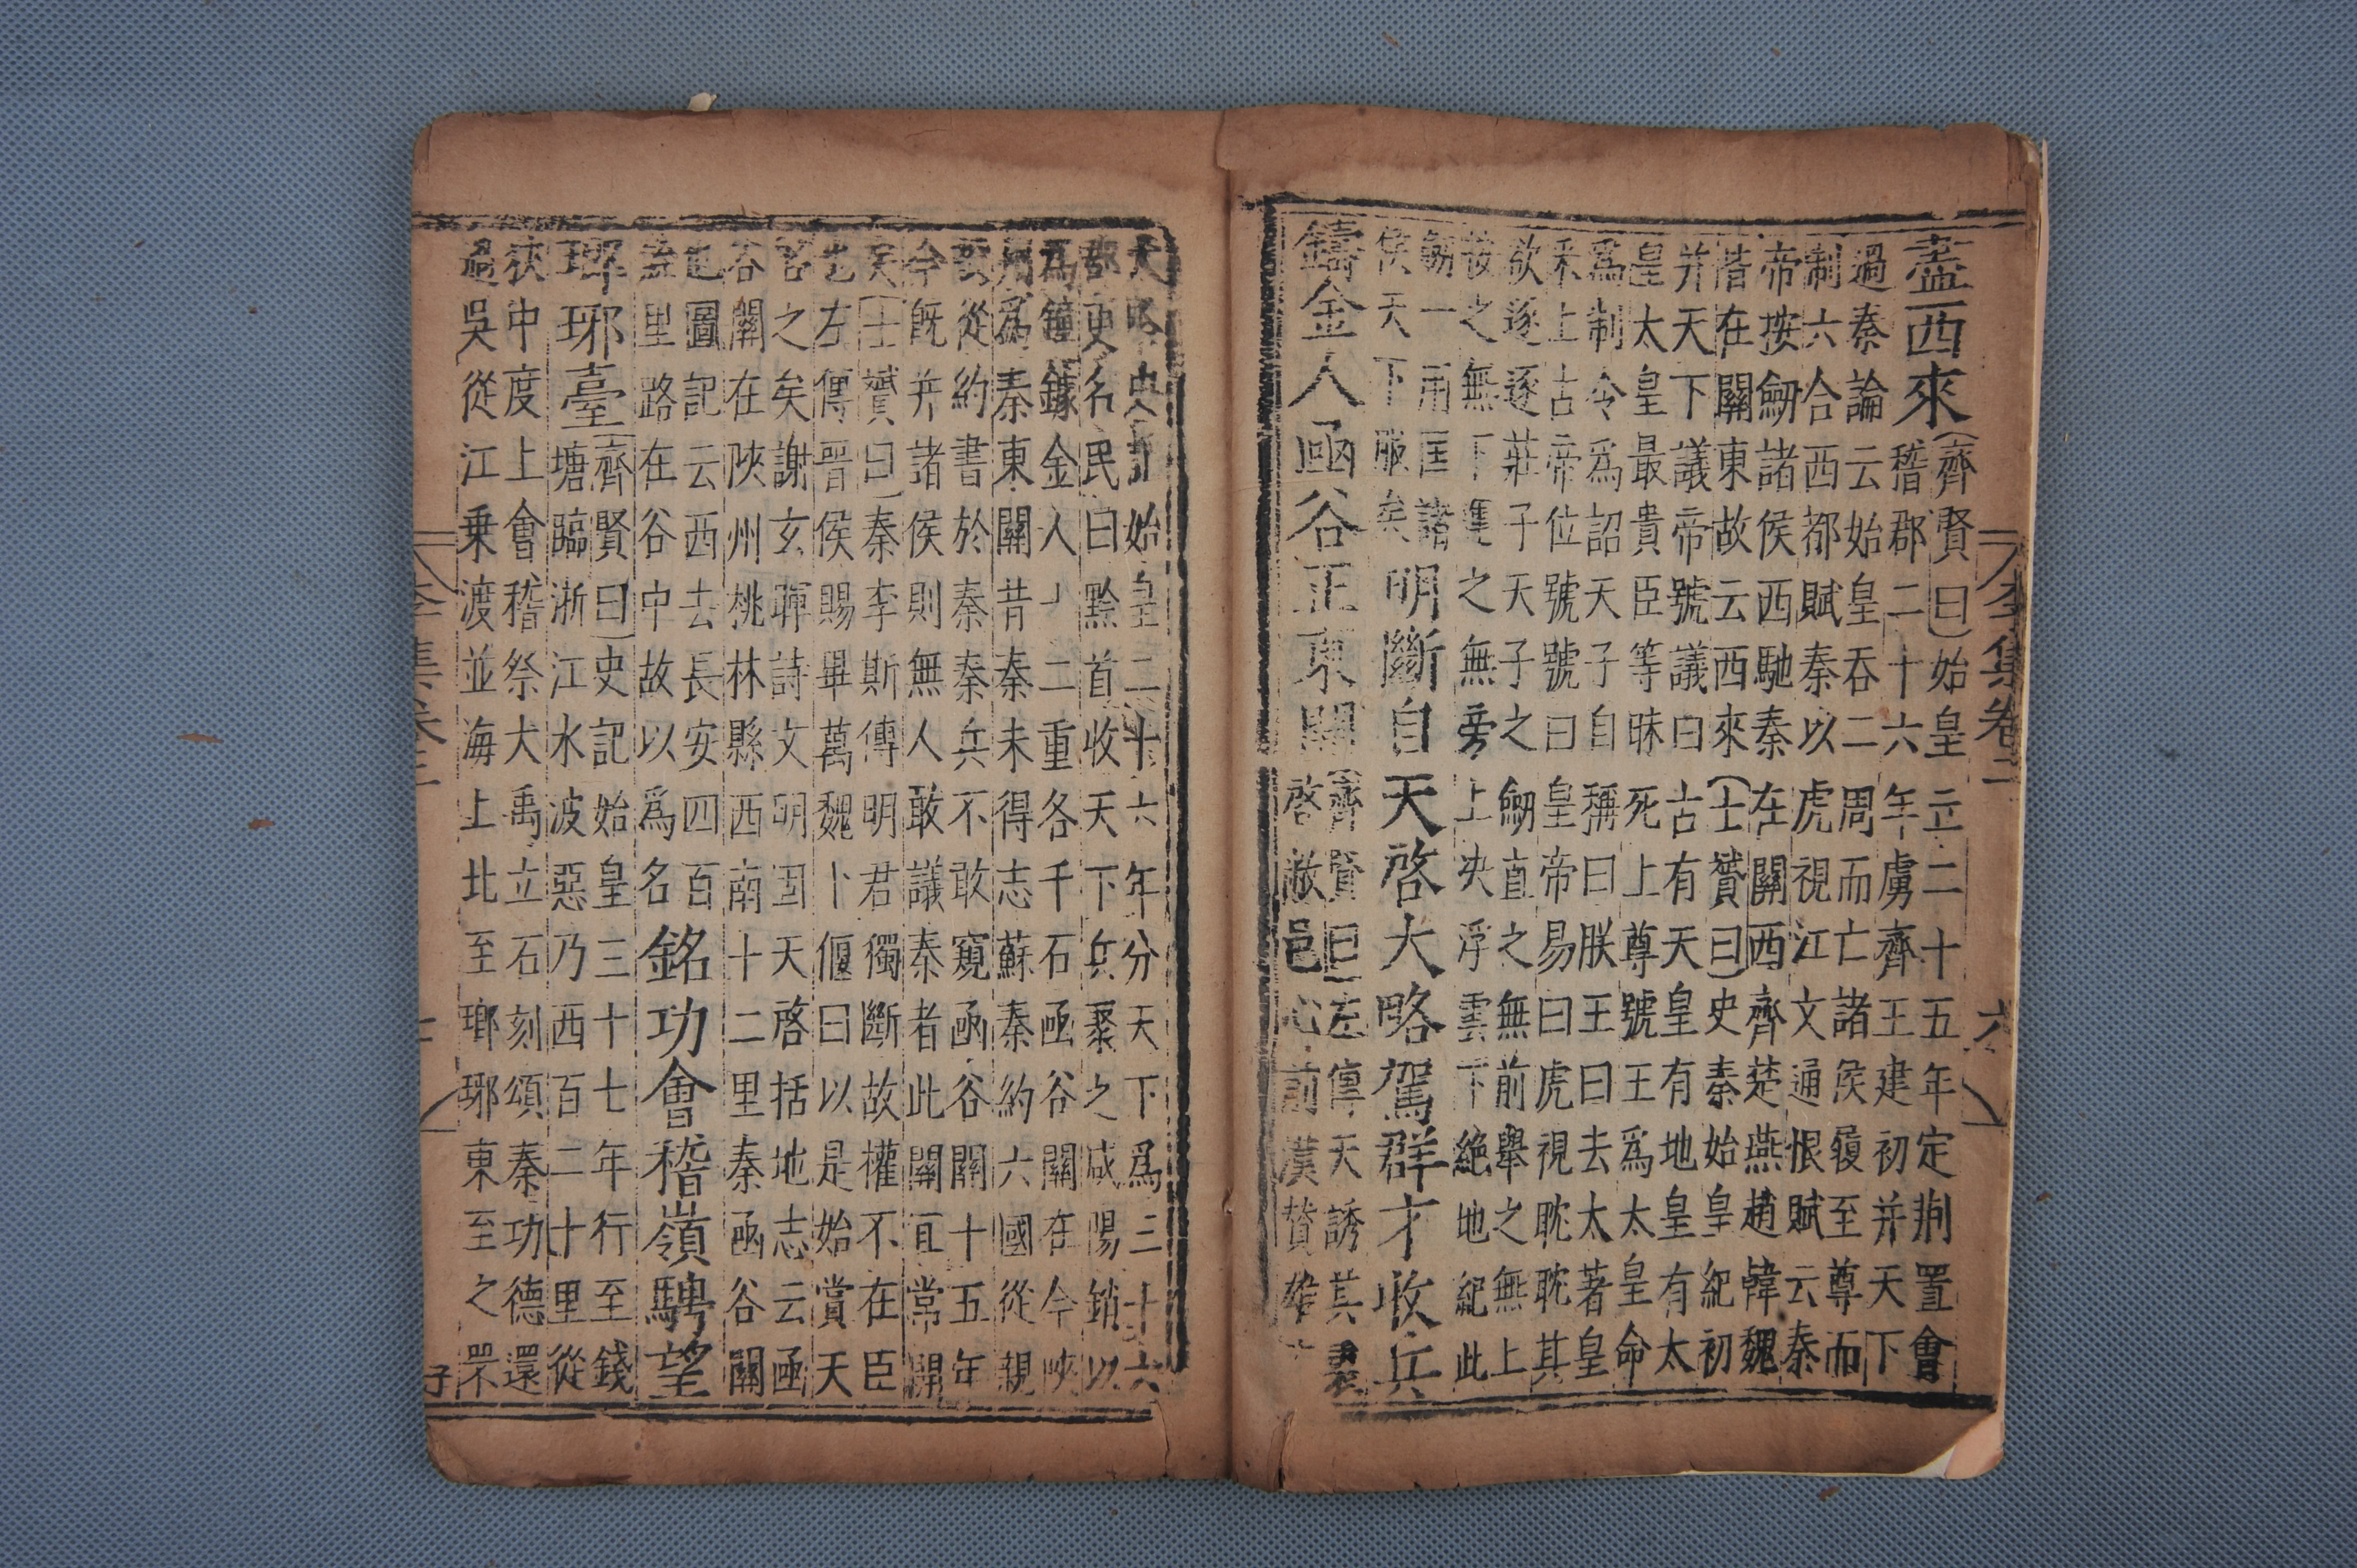 李集卷二
六
盡西來(齊賢曰)始皇立二十五年定荆置會
稽郡二十六年虜齊王建初并天下
過秦論云始皇吞二周而亡諸侯履至尊而
制六合西都賦秦以虎視江文通恨賦云秦
帝按劒諸侯西馳秦在關西齊楚燕趙韓魏
皆在關東故云西來(士贇曰)史秦始皇紀初
并天下議帝號議曰古有天皇有地皇有太
皇太皇最貴臣等昧死上尊號王爲太皇命
爲制令爲詔天子自稱曰朕王曰去太著皇
采上古帝位號號曰皇帝易曰虎視眈眈其
欲逐逐莊子天子之劒直之無前舉之無上
按之無下運之無旁上决浮雲下絶地紀此
劒一用匡諸
侯天下服矣
明斷自天啓大略駕群才收兵
鑄金人函谷正東開(齊賢曰)左傳天誘其衷
啓敝邑心前漢贊雄才
大略史(記)始皇二十六年分天下爲三十六
郡更名民曰黔首收天下兵聚之咸陽銷以
爲鐘鐻金人十二重各千石函谷關在今陝
州爲秦東關昔秦未得志蘇秦約六國從親
投從約書於秦秦兵不敢窺函谷關十五年
今旣并諸侯則無人敢議秦者此關宜常開
矣(士贇曰)秦李斯傳明君獨斷故權不在臣
也左傳晉侯賜畢萬魏卜偃曰以是始賞天
啓之矣謝玄暉詩文明固天啓括地志云函
谷關在陝州桃林縣西南十二里秦函谷關
也圖記云西去長安四百
里路在谷中故以爲名
銘功會稽嶺騁望
琅琊臺(齊賢曰)史記始皇三十七年行至錢
塘臨浙江水波惡乃西百二十里從
狹中度上會稽祭大禹立石刻頌秦功德還
過吳從江乗渡並海上北至琅琊東至之罘